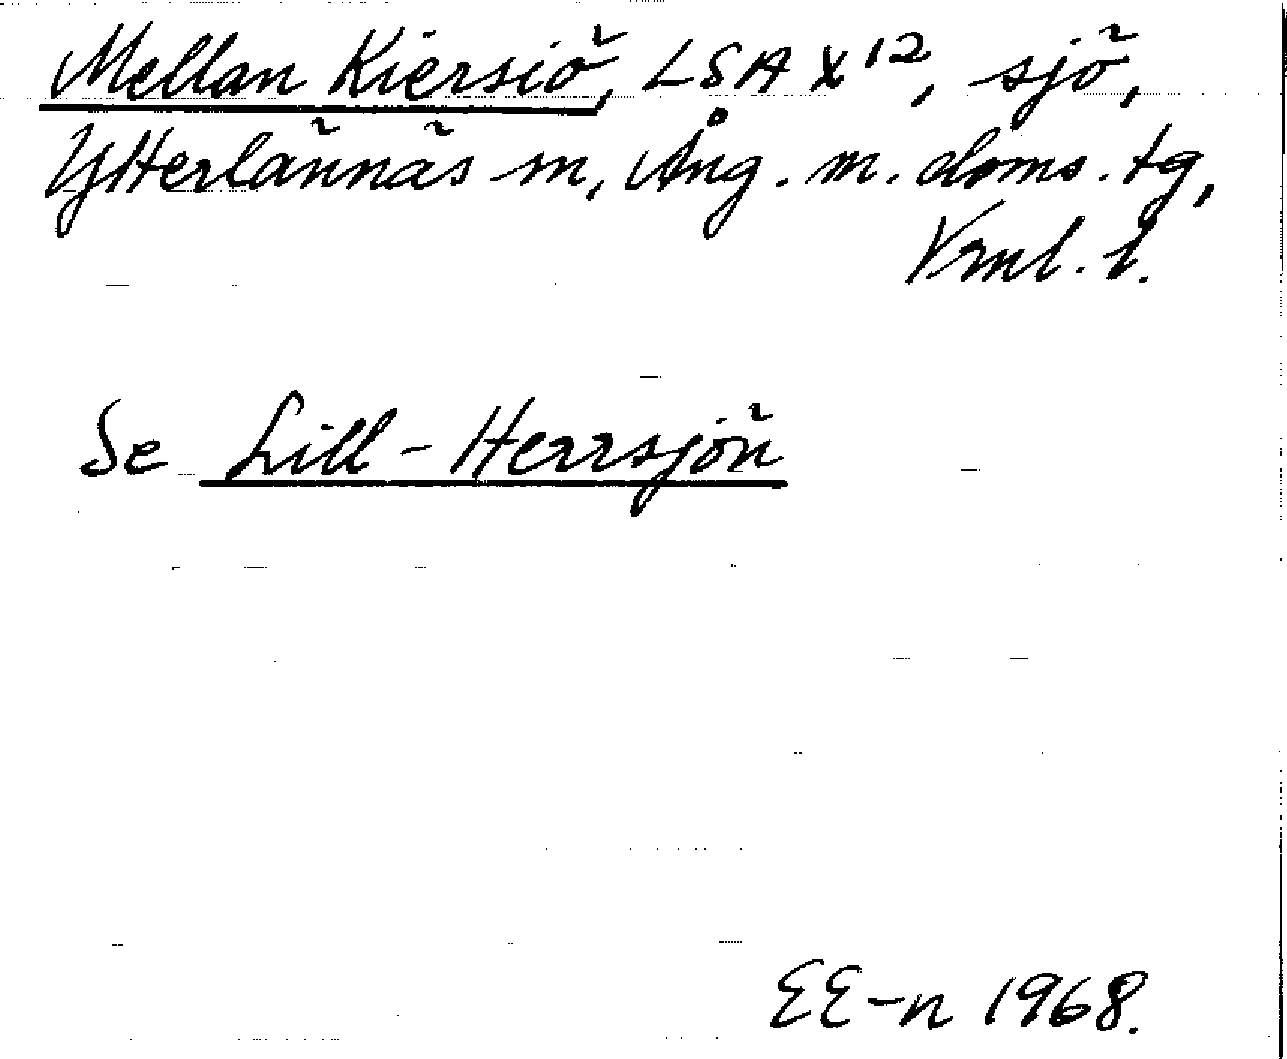 Mellan Kiersiö, LSA X 12, sjö,
Ytterlännäs sn, Ång. m. doms. tg,
Vrnl. l.
Se Lill-Herrsjön
EE-n 1968.